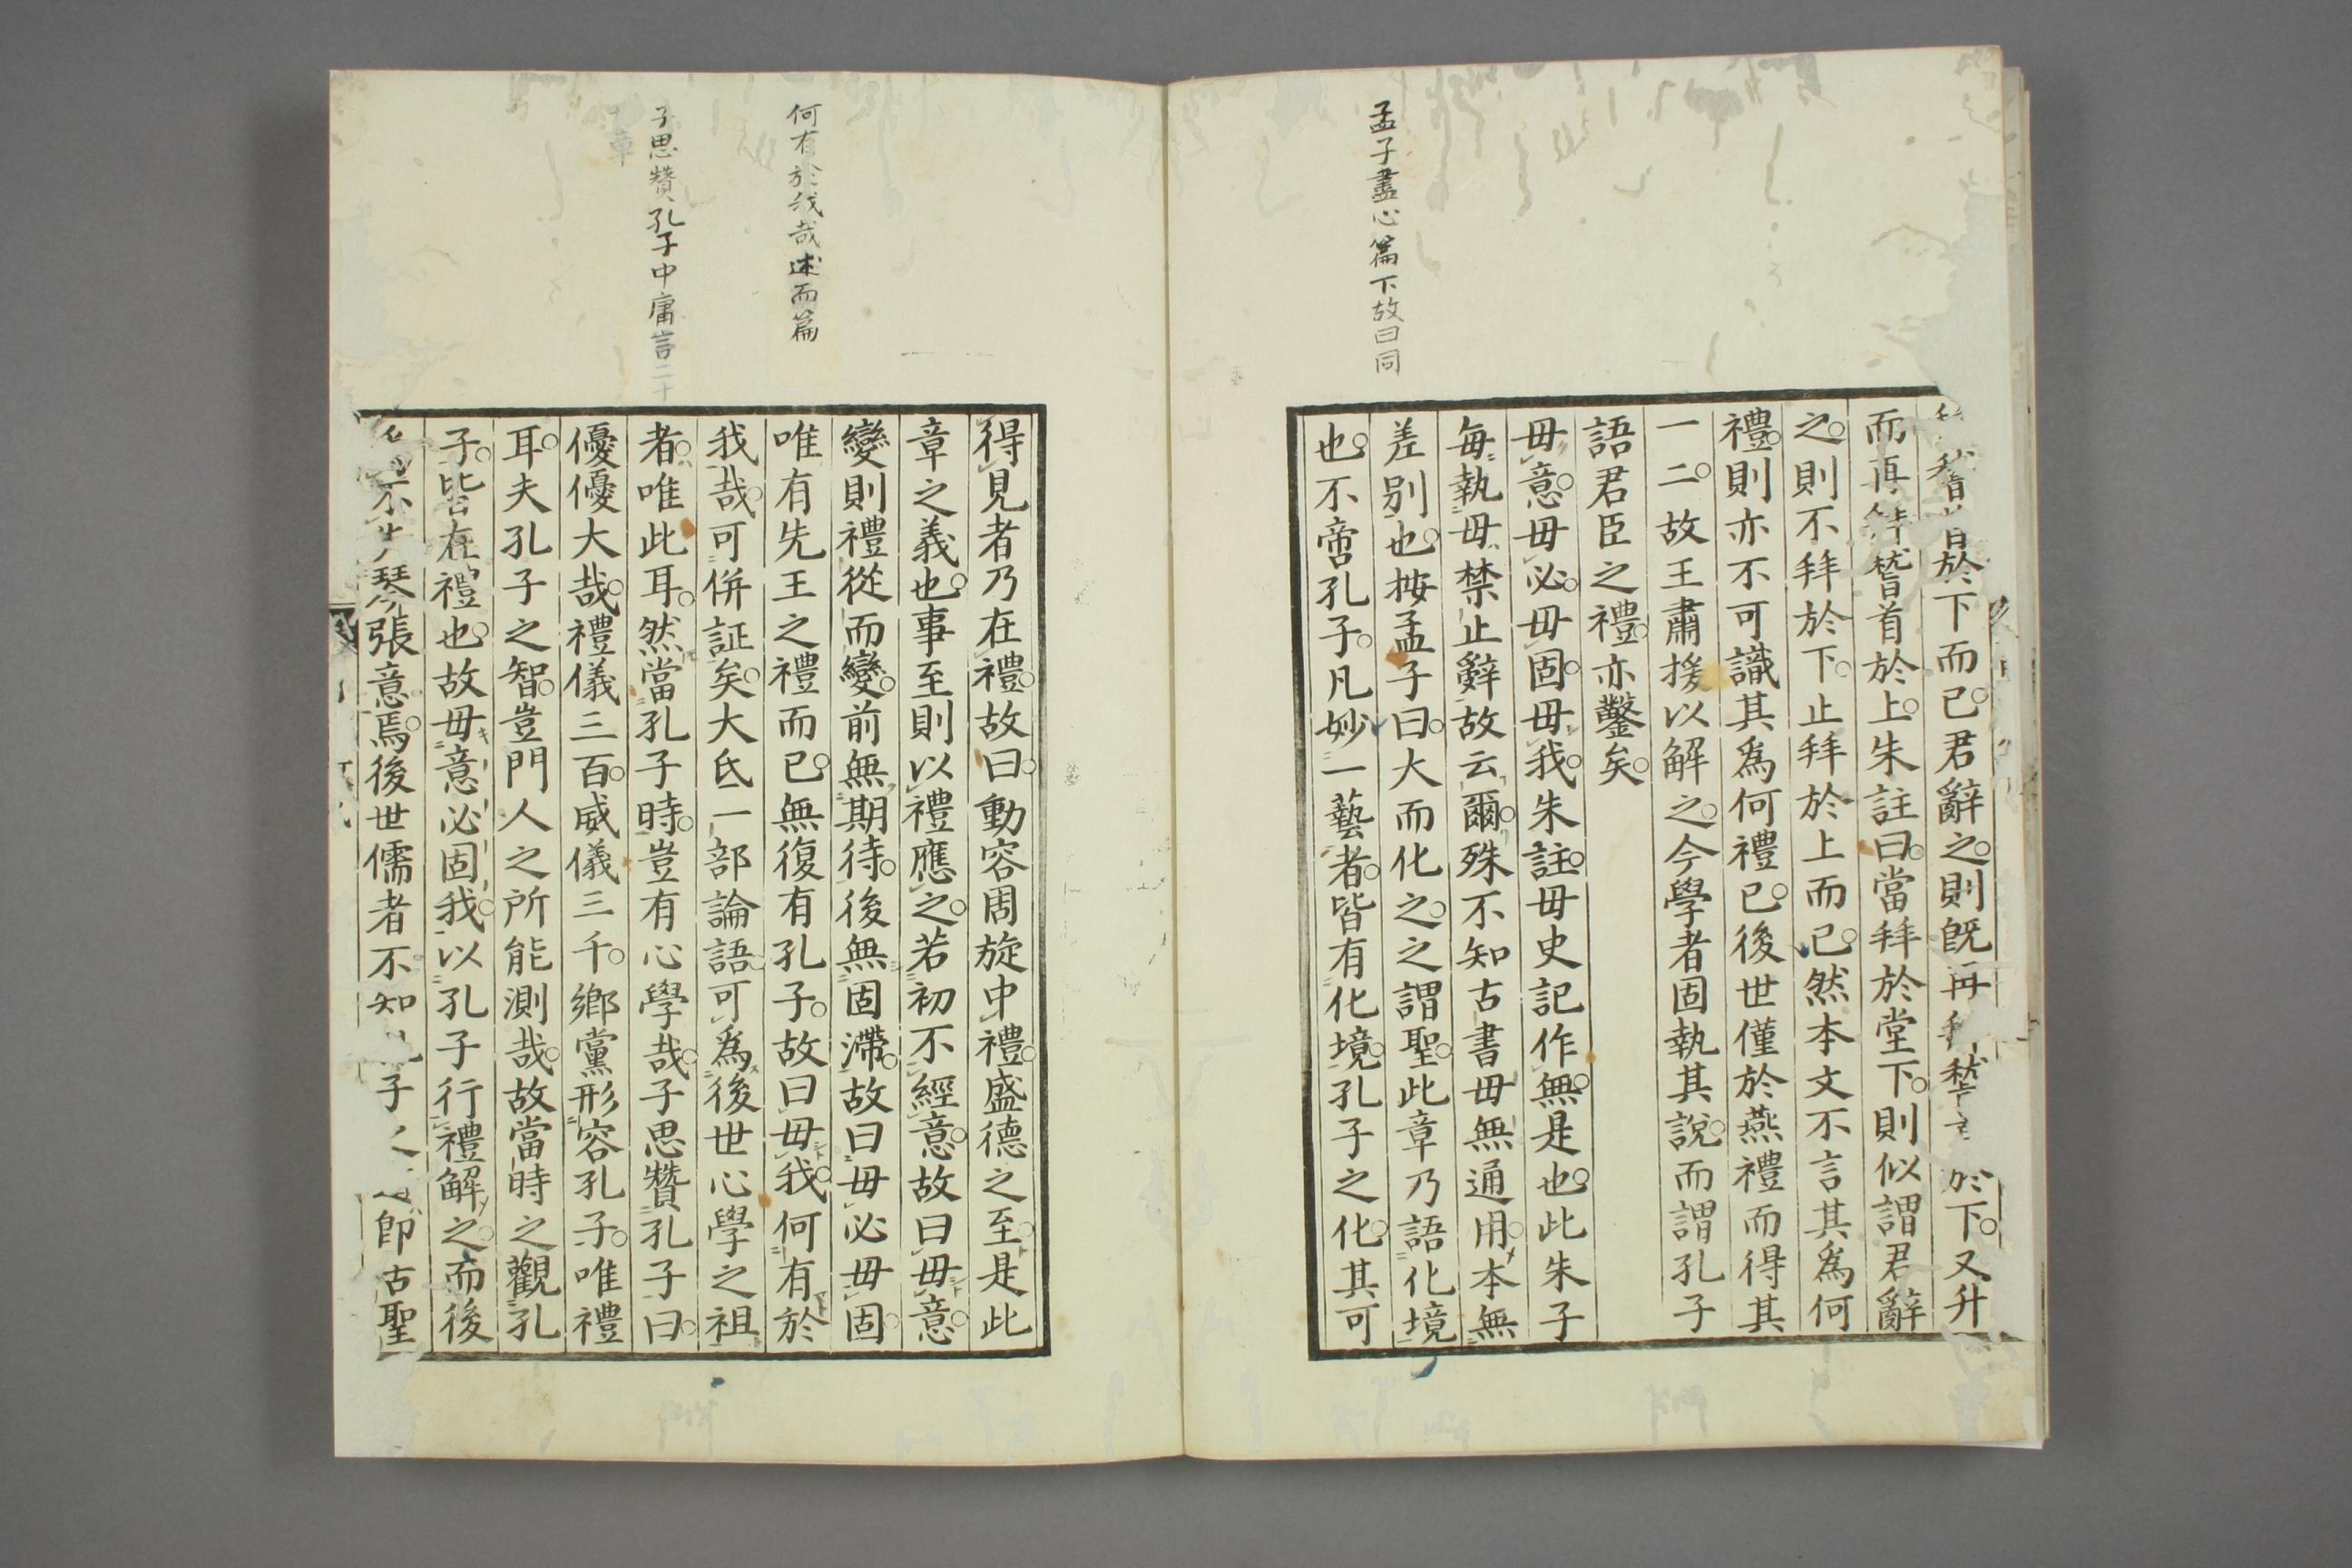 孟子盡心篇下故曰同
稽首於下而已君辭之則既再拜稽於下又升
而再拜稽首於上朱註曰當拜於堂下則似謂君辭
之則不拜於下止拜於上而已然本文不言其爲何
禮則亦不可識其爲何禮已後世僅於燕禮而得其
一二故王肅援以解之今學者固執其說而謂孔子
語君臣之禮亦鑿矣
毋意毋必毋固毋我朱註毋史記作無是也此朱子
每執毋禁止辭故云爾殊不知古書毋無通用本無
差別也按孟子曰大而化之之謂聖此章乃語化境
也不啻孔子凡妙一藝者皆有化境孔子之化其可
何有於我哉述而篇
子思贊孔子中庸言二十
章
得見者乃在禮故曰動容周旋中禮盛德之至是此
章之義也事至則以禮應之若初不經意故曰毋意
變則禮從而變前無期待後無固滯故曰毋必毋固
唯有先王之禮而已無復有孔子故曰毋我何有於
我哉可併証矣大氐一部論語可爲後世心學之祖
者唯此耳然當孔子時豈有心學哉子思贊孔子曰
優優大哉禮儀三百威儀三千鄉黨形容孔子唯禮
耳夫孔子之智豈門人之所能測哉故當時之觀孔
子皆在禮也故毋意必固我以孔子行禮解之而後
不失琴張意焉後世儒者不知子之即古聖